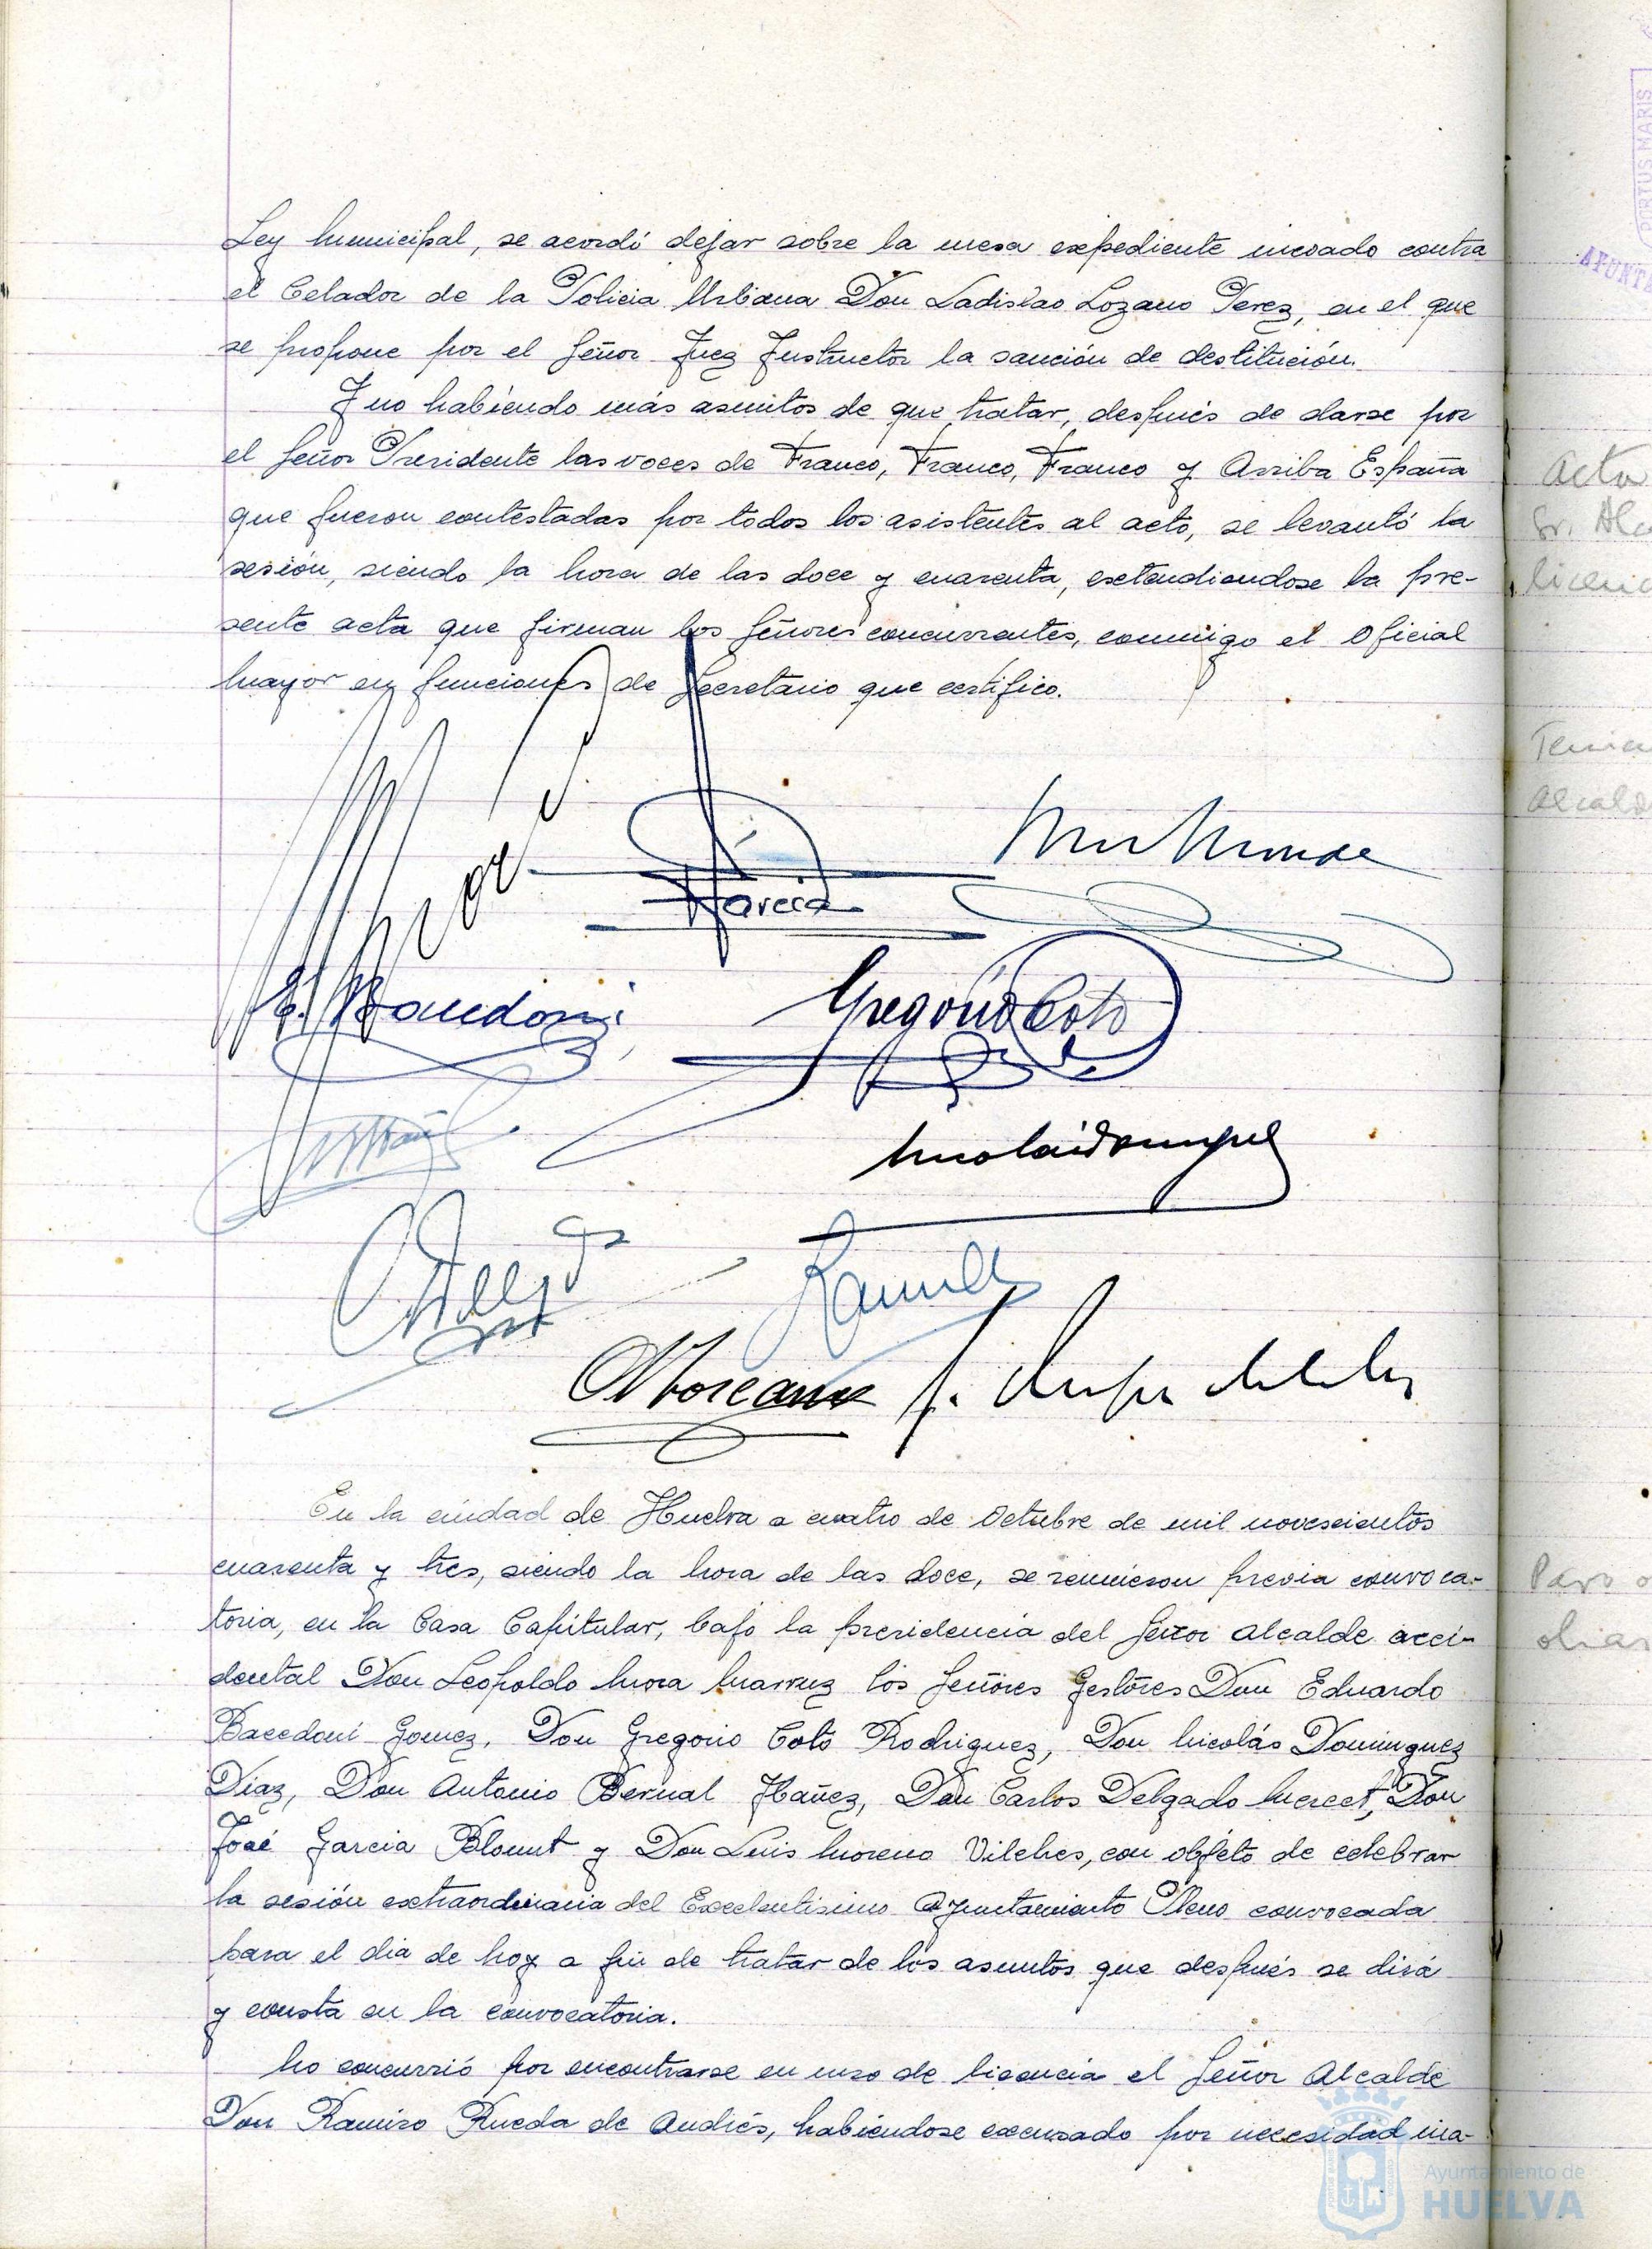 Ley Municipal, se acordó dejar sobre la mesa expediente incoado contra
el Celador de la Policia Urbana Don Ladislao Lozano Perez, en el que
se propone por el Señor Juez Instructor la sanción de destitución.
Y no habiendo más asuntos de que tratar, después de darse por
el Señor Presidente las voces de Franco, Franco, Franco y Arriba España
que fueron contestadas por todos los asistentes al acto, se levantó la
sesión, siendo la hora de las doce y cuarenta, extendiendose la pre-
sente acta que firman los Señores concurrentes, conmigo el Oficial
Mayor en funciones de Secretario que certifico.
Garcia
E. Bacedoni
Gregorio Coto
Nicolas Dominguez
L Moreano
En la ciudad de Huelva a cuatro de Octubre de mil novescientos
cuarenta y tres, siendo la hora de las doce, se reunieron previa convoca-
toria, en la Casa Capitular, bajo la presidencia del Señor Alcalde acci-
dental Don Leopoldo Mora Marruz los Señores Gestores Don Eduardo
Bacedoni Gomez, Don Gregorio Coto Rodriguez, Don Nicolás Dominguez
Diaz, Don Antonio Bernal Ibañez, Don Carlos Delgado Mercet, Don
José Garcia Blount y Don Luis Moreno Vilches, con objeto de celebrar
la sesión extraordinaria del Excelentisimo Ayuntamiento Pleno convocada
para el dia de hoy a fin de tratar de los asuntos que después se dirá
y consta en la convocatoria.
No concurrió por encontrarse en uso de licencia el Señor Alcalde
Don Ramiro Rueda de Andrés, habiéndose excusado por necesidad ina-
Acta
Sr. Alc
licenc
Tenien
Alcald
Paro o
PORTUS MARIS
AYUNTA
Ayuntamiento de
HUELVA